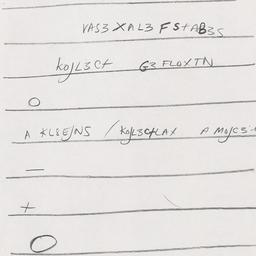 VAS3 XAL3 FS+AB3S
KO/L3C+ G3 FLOXTN
O
A KL8E/NS /KO/L3C+LAX A MO/C3-
—
+
O